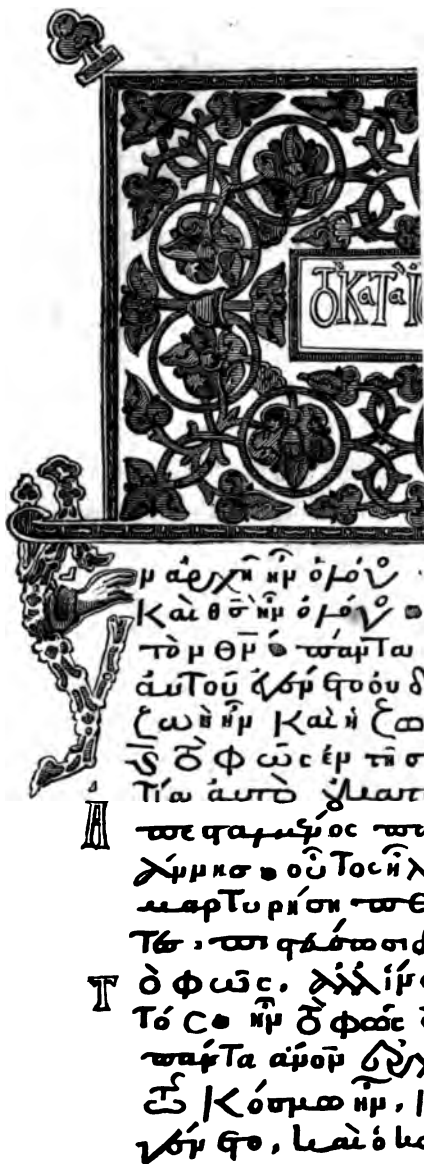 ὁ κατὰ Ἰ
ν ἀρχῆ ἦν ὁ λόγο
Καὶ θσ ἦν ὁ λόγο
τὸν θν · πάντα
αὐτοῦ ἐγένετο οὐδ
ζωὴ ἦν καὶ ἡ ζω
τὸ φῶς ἐν τῆ σ
τία αὐτὸ οὐ κατ
Ἀπεσταλμένος πα
άννησ · οὗτος ἦλ
μαρτυρήση πε
πιστεύσωσι δ
Τὸ φῶς. ἀλλ ἵν
τός · ἦν τὸ φῶς
πάντα ἄνον ἐρχ
κόσμω ἦν.
γένετο. καὶ ὁ κο